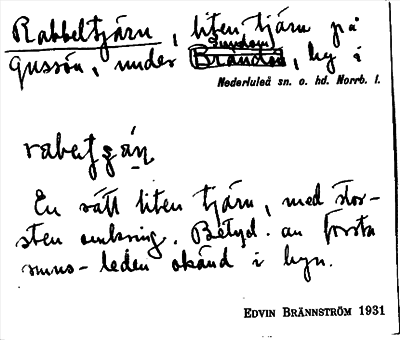 Rabbeltjärn, liten tjärn på
Sundom
Gussön, under Brändön, by i
Nederluleå sn. o. hd. Norrb. l.
En rätt liten tjärn, med stor-
sten omkring. Betyd. av första
namns-leden okänd i byn.
EDVIN BRÄNNSTRÖM 1931